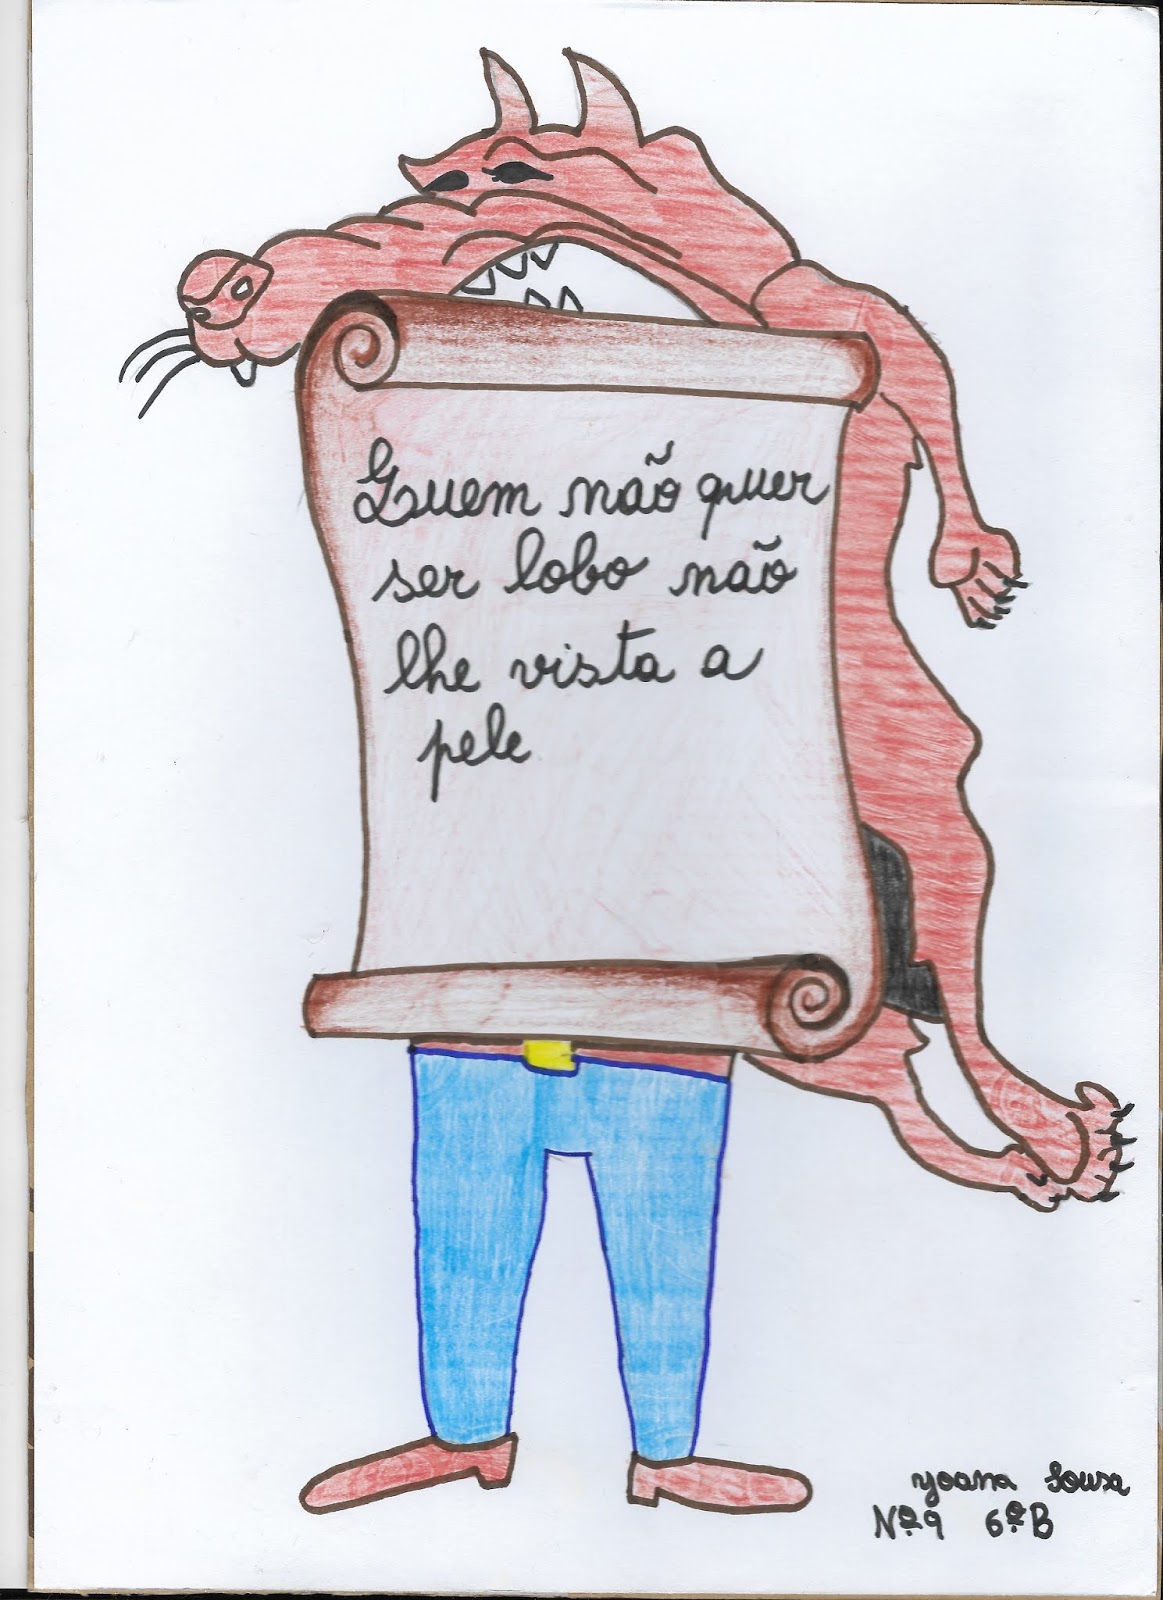 Quem não quer
ser lobo não
lhe vista a
pele
Yoana Sousa
Nº9 6ºB